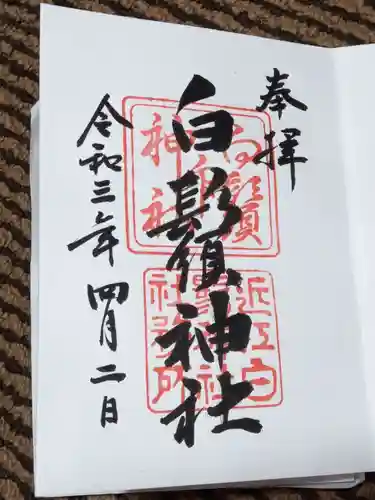 奉拝
白鬚神社
令和三年四月二日
白鬚
神社
近江白
鬚神社
社務所